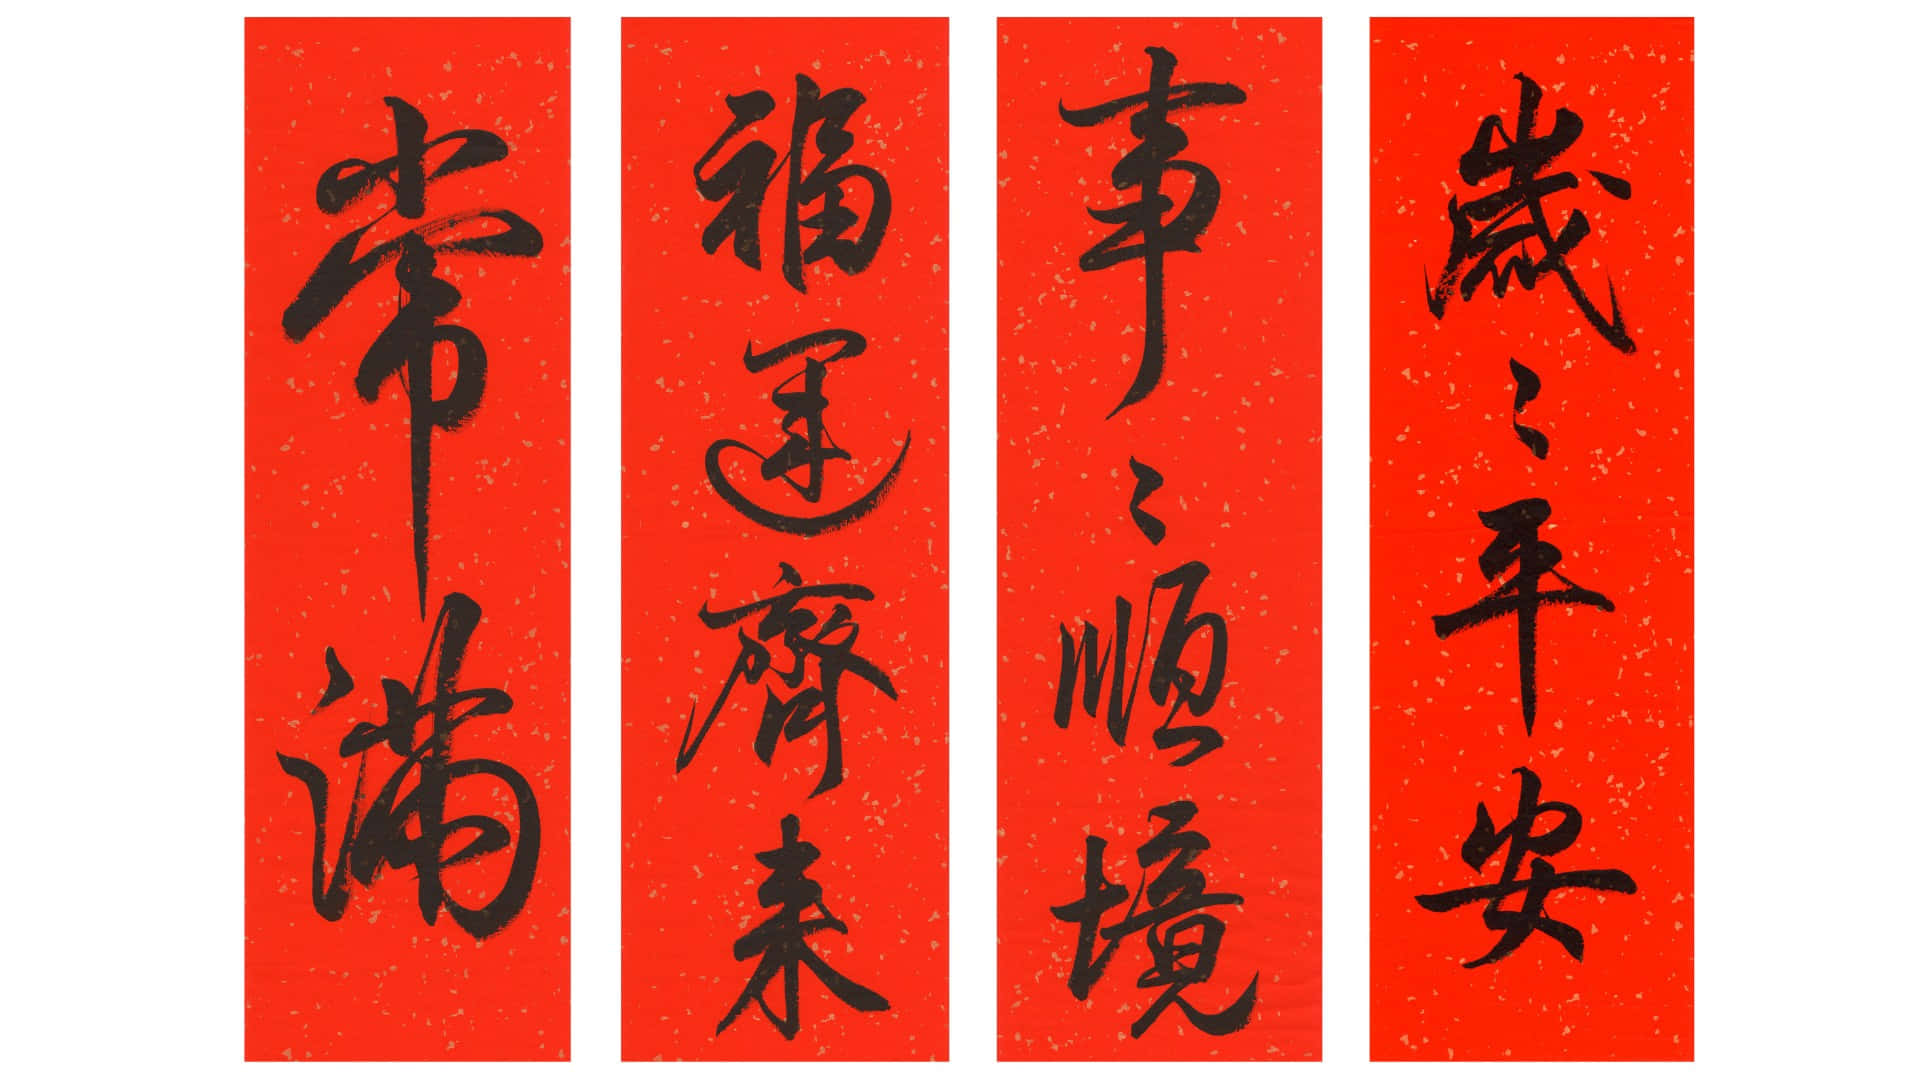 歲〻平安
事〻順境
福運齊来
常滿